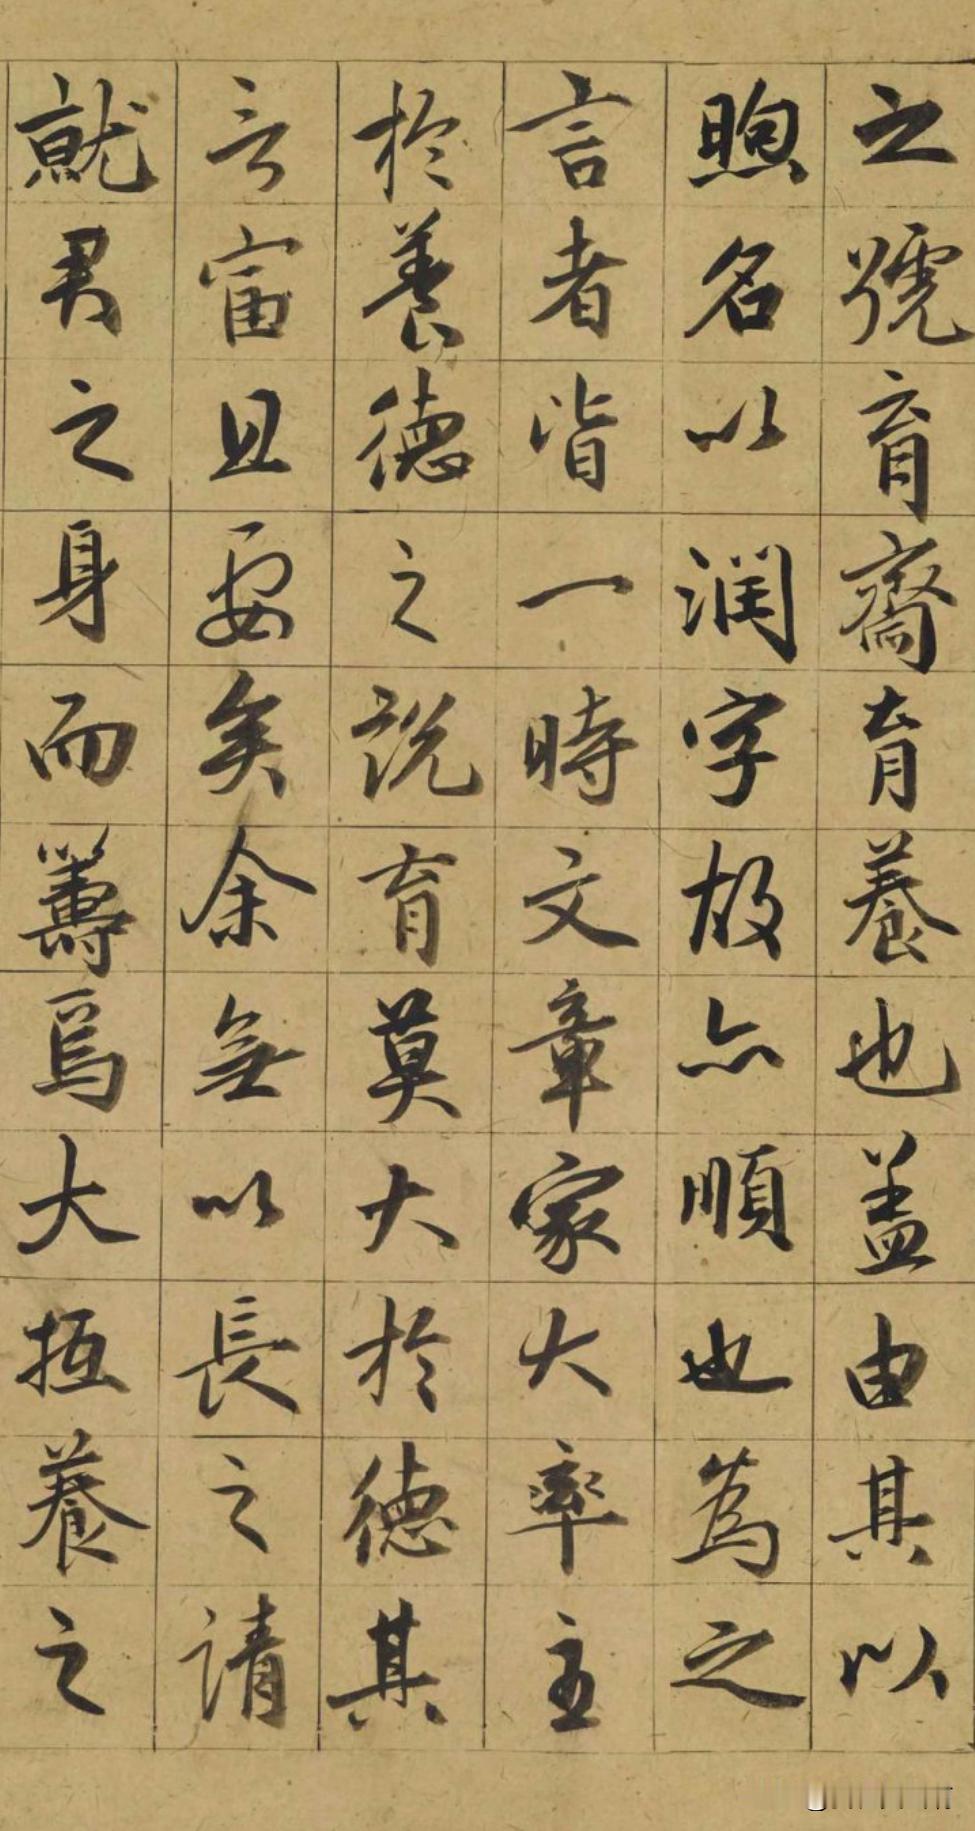 之號育齋育養也盖由其以
煦名以潤字故亦順也為之
言者皆一時文章家大率主
於養德之說育莫大於德其
言富且要矣余無以長之請
就君之身而籌焉大抵養之